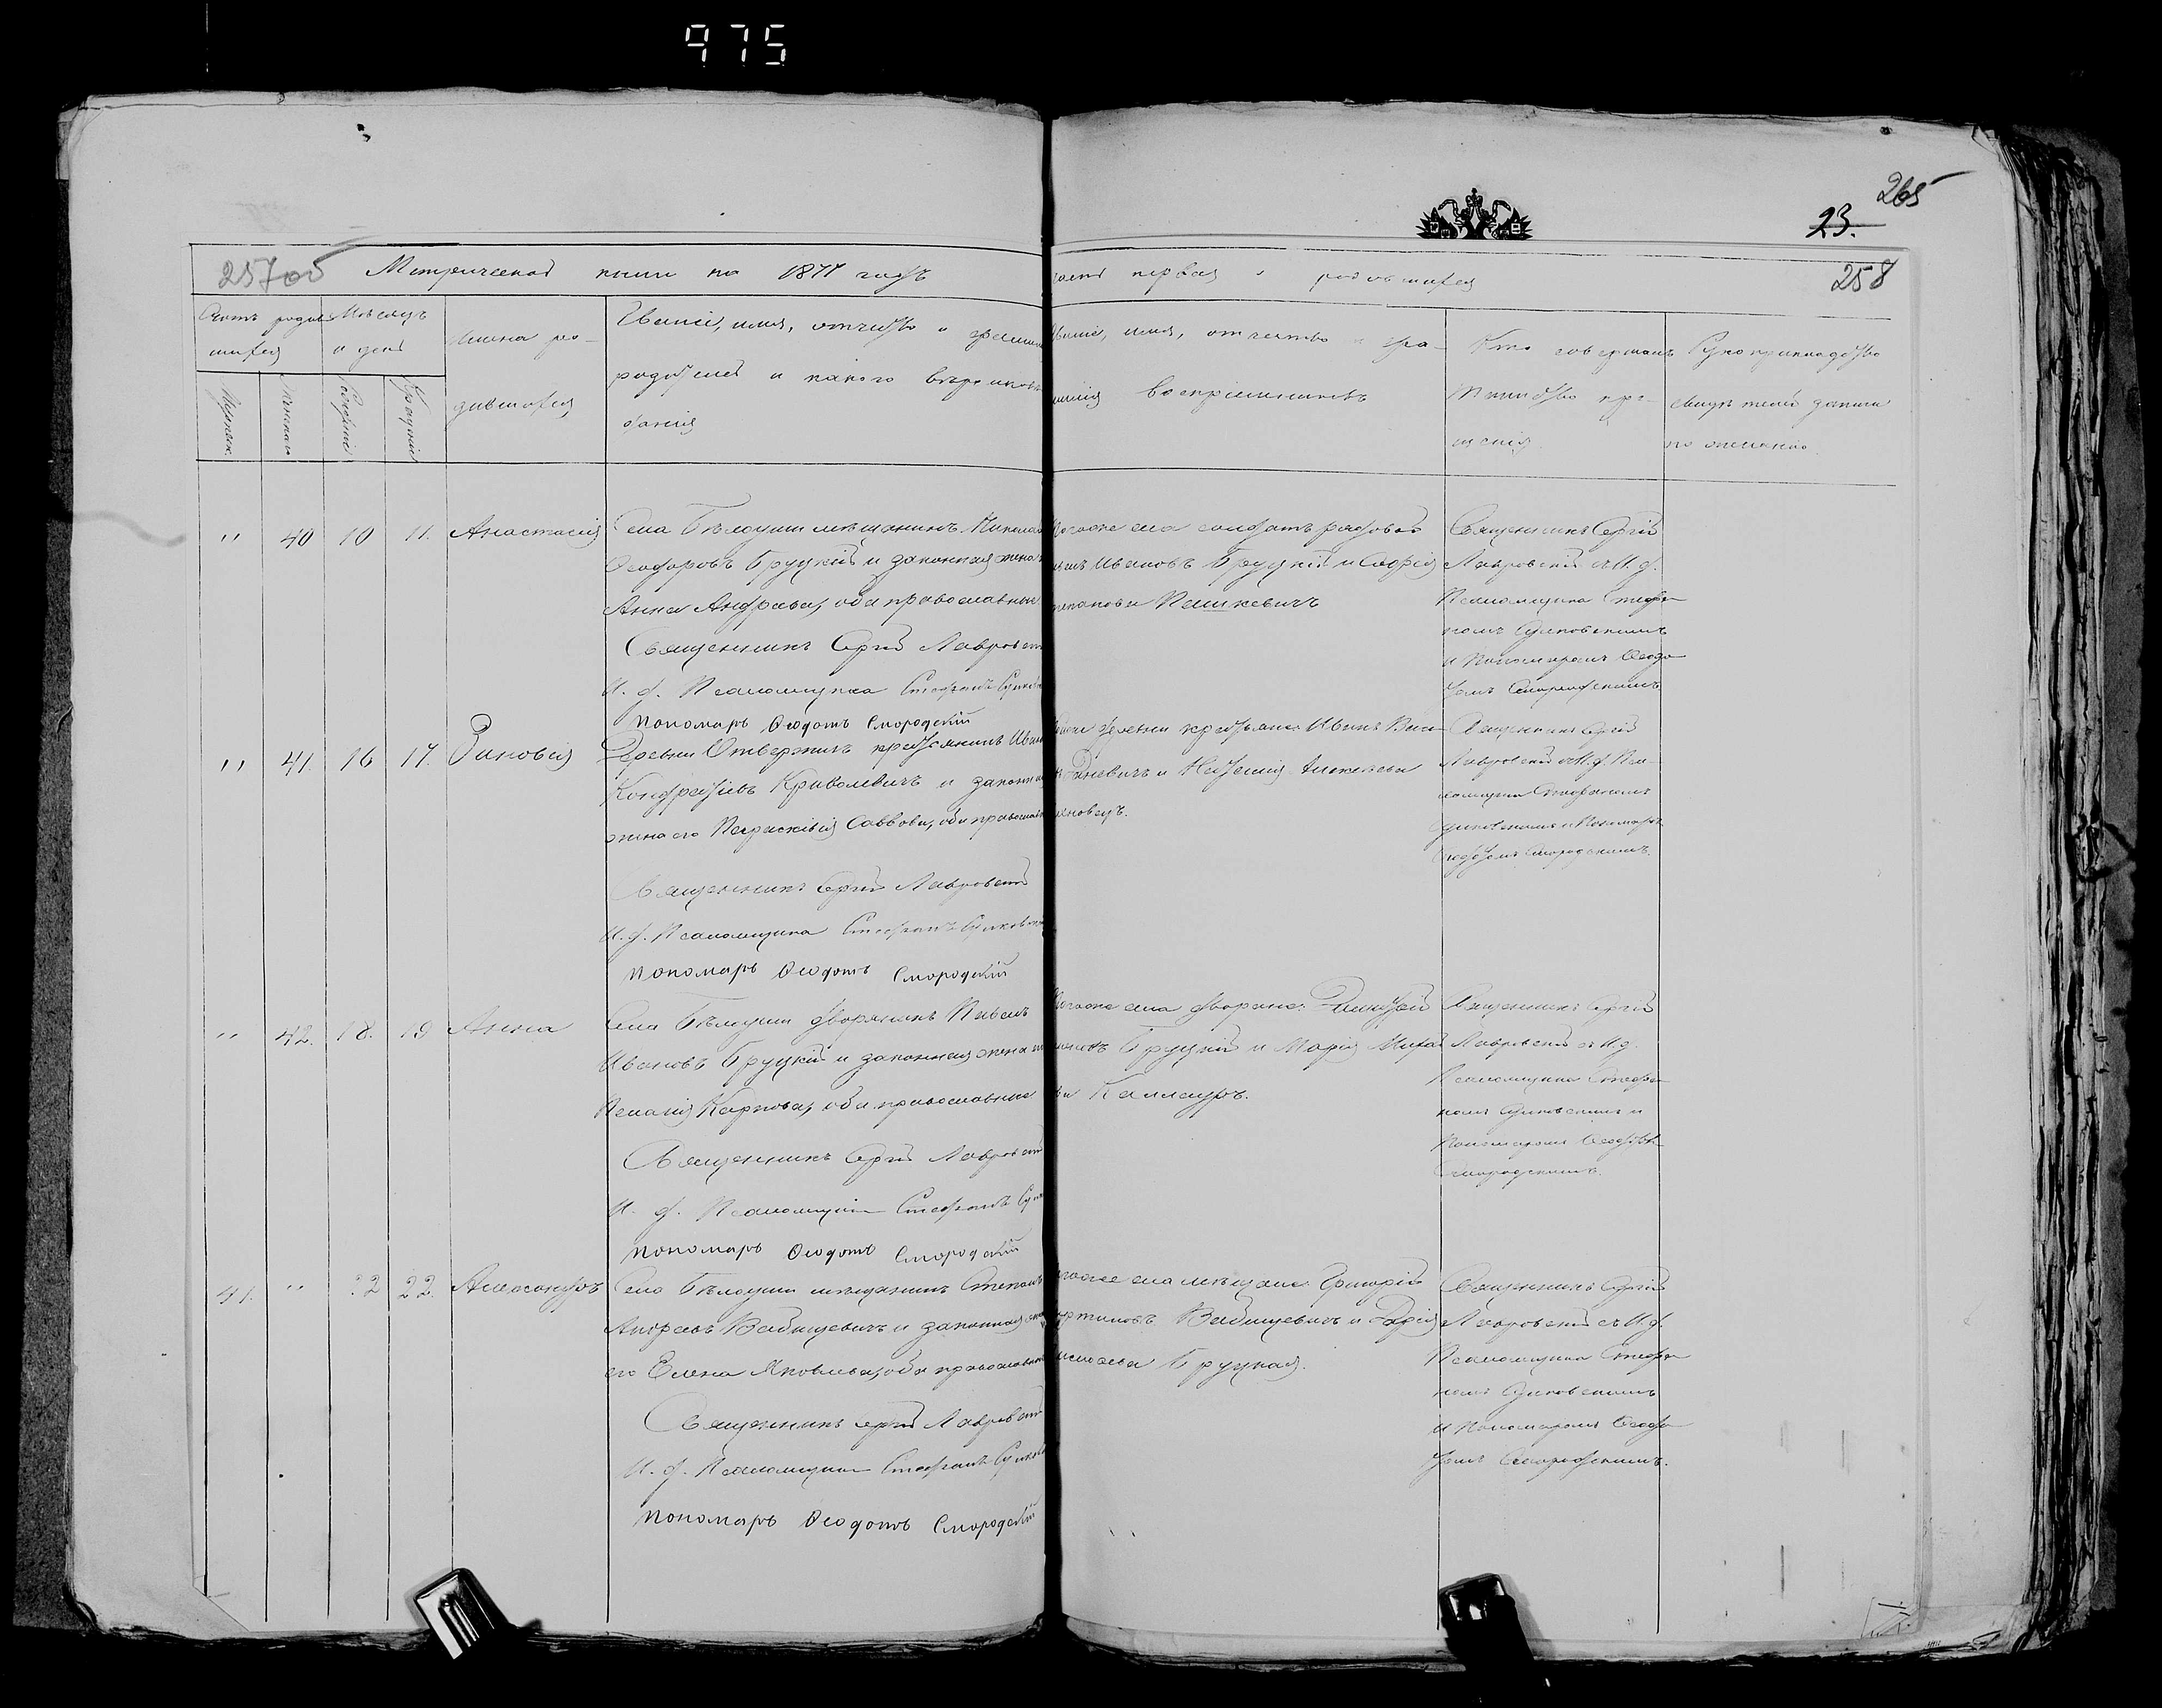 975
265
23.
257об Метрической книги на 1877 годъ
часть первая о родившихся
258
Счетъ родив-
шихся
Мѣсяцъ
и день
Имена ро-
дившихся
Званіе, имя, отчество и фамилія
родителей и какого вѣроисповѣ
данія
Званіе, имя, отчество и фа-
милія воспріемниковъ
Кто совершалъ
таинство кре-
щенія
Рукоприкладство
свидѣтелей записи
по желанію
Мужеск.
Женскаго
Рожденія
Крещенія
" 40 10 11. Анастасія
Села Бѣлоуши мѣщанинъ Николай
Ѳеодоровъ Бруцкій и законная жена
Анна Андреева, оба православные
Священникъ Сергій Лавровскій
И. д. Псаломщика Стефанъ
Пономарь Ѳеодотъ Смородскій
тогоже села солдатъ рядовой
Ивановъ Бруцкій и Софія
Степанова Пашкевичъ
Священникъ Сергій
Лавровскій съ И. д.
Псаломщика Стефа-
номъ
и Пономаремъ Ѳеодо-
томъ Смородскимъ
" 41. 16 17. Зиновія
Деревни Отвержичъ крестьянинъ Иванъ
Кондратіевъ Криволевичъ и законная
жена его Параскевія Саввова, оба православн
Священникъ Сергій Лавровскій
И. д. Псаломщика Стефанъ
Пономарь Ѳеодотъ Смородскій
деревни крестьяне: Иванъ
и Наталія Алексѣева
Священникъ Сергій
Лавровскій съ И. д. Пса-
ломщика Стефаномъ
и Пономаремъ
Ѳеодотомъ Смородскимъ.
" 42. 18. 19 Анна
Села Бѣлоуши дворянинъ Павелъ
Ивановъ Бруцкій и законная жена
Пелагія Карпова, оба православные
Священникъ Сергій Лавровскій
И. д. Псаломщика Стефанъ
Пономарь Ѳеодотъ Смородскій
тогоже села дворяне: Димитрій
Бруцкій и Марія Михай
ва Каллауръ.
Священникъ Сергій
Лавровскій съ И. д.
Псаломщика Стефа-
номъ и
Пономаремъ Ѳеодотомъ
Смородскимъ.
41. " 22 22. Александръ
Села Бѣлоуши мѣщанинъ Степанъ
Андреевъ Вабищевичъ и законная жена
его Елена Яковлева, оба православные
Священникъ Сергій Лавровскій
И. д. Псаломщика Стефанъ
Пономарь Ѳеодотъ Смородскій
тогоже села мѣщане: Григорій
Мартиновъ Вабищевичъ и Дарія
Бруцкая.
Священникъ Сергій
Лавровскій съ И. д.
Псаломщика Стефа-
номъ
и Пономаремъ Ѳеодо-
томъ Смородскимъ.